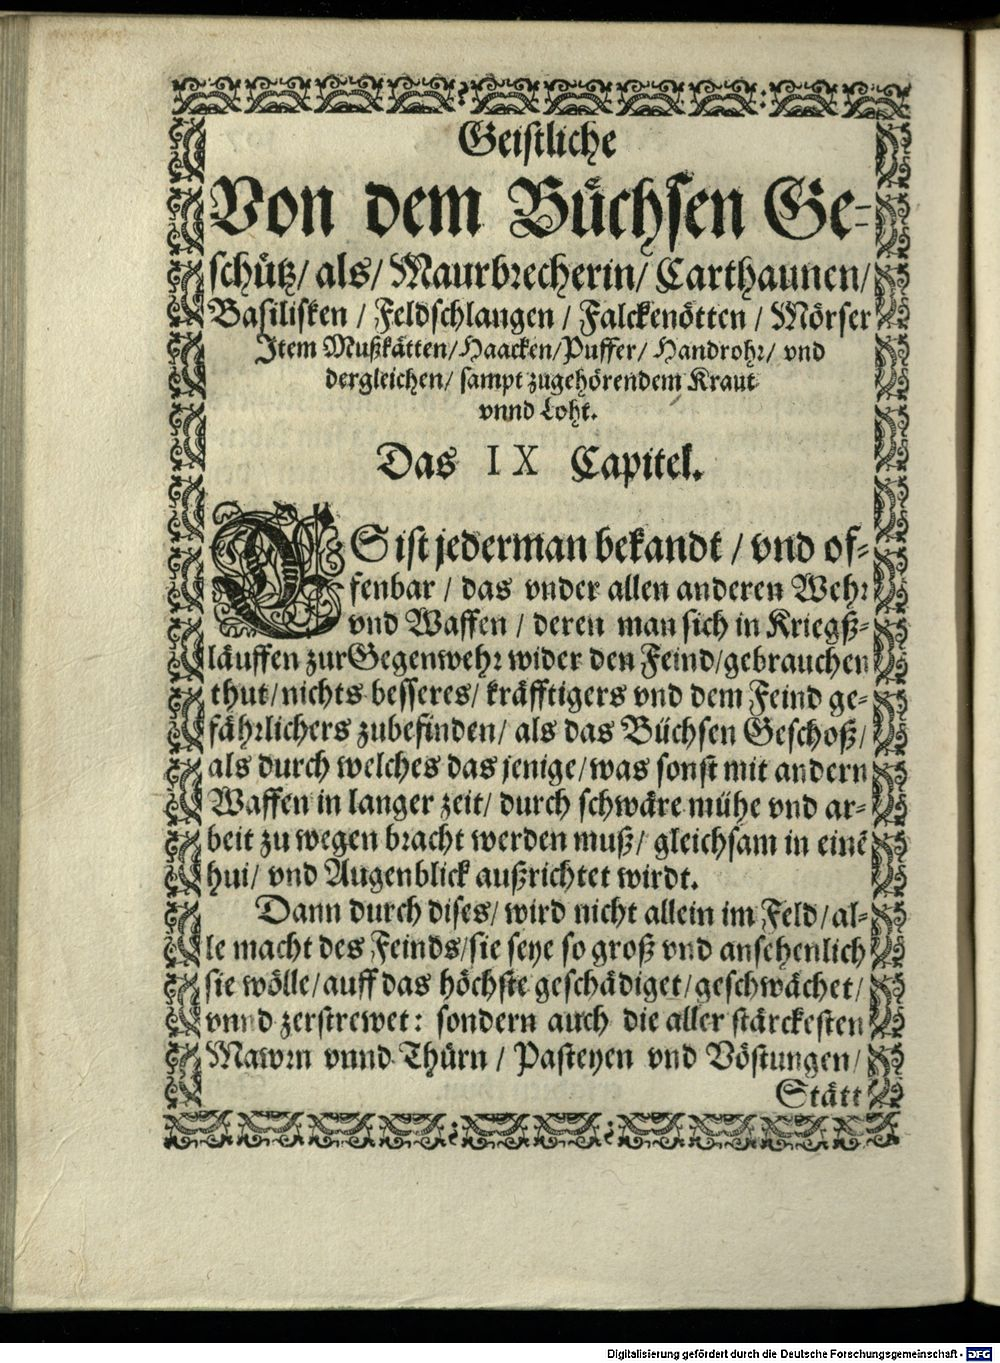 Geistliche
Von dem Büchsen Ge-
schütz/ als/ Maurbrecherin/ Carthaunen/
Basilisken / Feldschlangen / Falckenötten / Mörser
Item Mußkätten/ Haacken/ Puffer/ Handrohr/ vnd
dergleichen/ sampt zugehörendem Kraut
vnnd Loht.
Das IX Capitel.
ES ist jederman bekandt / vnd of-
fenbar / das vnder allen anderen Wehr
vnd Waffen / deren man sich in Kriegß-
läuffen zur Gegenwehr wider den Feind/ gebrauchen
thut/ nichts besseres/ kräfftigers vnd dem Feind ge-
fährlichers zubefinden/ als das Büchsen Geschoß/
als durch welches das jenige/ was sonst mit andern
Waffen in langer zeit/ durch schwäre mühe vnd ar-
beit zu wegen bracht werden muß/ gleichsam in einē
hui/ vnd Augenblick außrichtet wirdt.
Dann durch dises/ wird nicht allein im Feld/ al-
le macht des Feinds/ sie seye so groß vnd ansehenlich
sie wölle/ auff das höchste geschädiget/ geschwächet/
vnnd zerstrewet: sondern auch die aller stärckesten
Mawrn vnnd Thürn / Pasteyen vnd Vöstungen/
Stätt
Digitalisierung gefördert durch die Deutsche Forschungsgemeinschaft - DFG